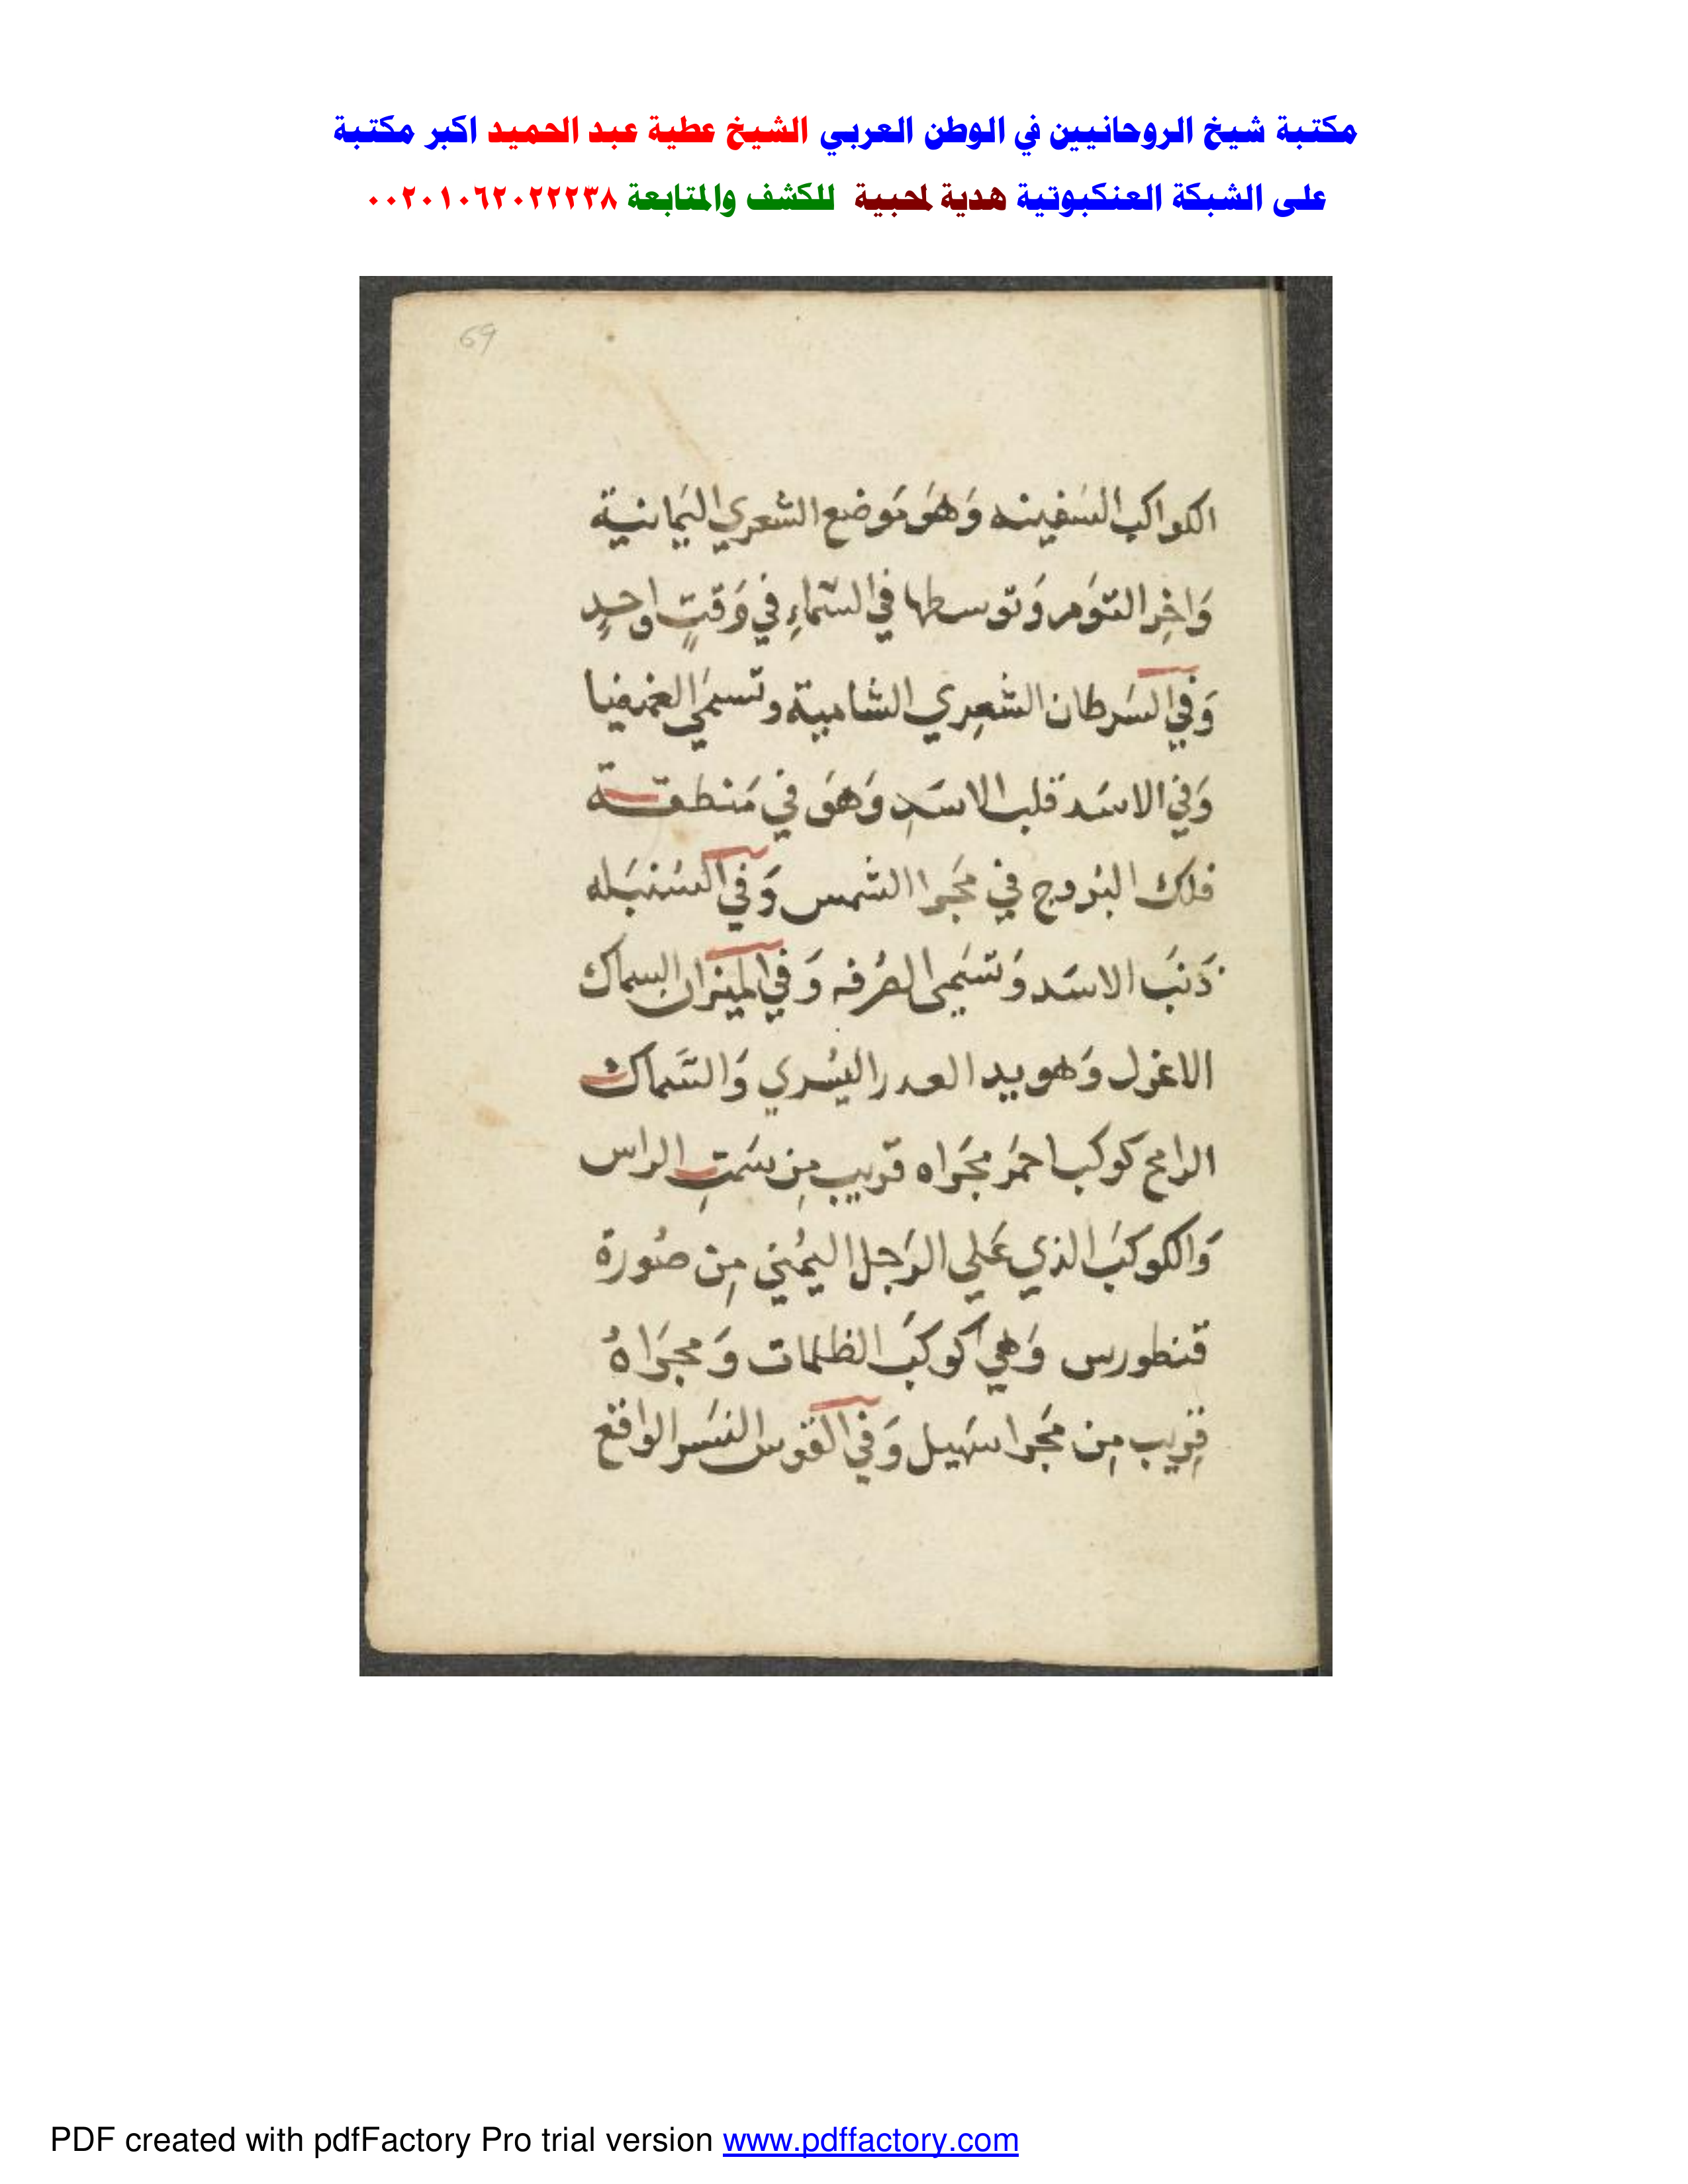 مكتبة شيخ الروحانيين في الوطن العربي الشيخ عطية عبد الحميد اكبر مكتبة
على الشبكة العنكبوتية هدية لمحبية للكشف والمتابعة ٠٠٢٠١٠٦٢٠٢٢٢٣٨
69
الكواكب السَفينه وَهوَ مَوضع الشعري اليَمانية
وَاخِر التوَمر وَتوسطها في السَماءِ في وَقتٍ واحدٍ
وَفي السَرطان الشعِري الشامية وتسمَي الغميضا
وَفي الاسَد قلب الاسَدِ وَهوَ في مَنطقة
فلك البُروج في مَجرا الشمس وَفي السُنبَله
ذَنبَ الاسَد وَتسَمى الصَرفه وَفي الميزان السماك
الاغزل وَهو يد اليسُري وَالسَماك
الرامح كوكب احمَر مجَراه قريب مِن سَمتِ الراس
وَالكوكبَ الذي عَلي الرَجل اليمُني مِن صُورة
قنطورس وَهي كوكبَ الظلمات وَمجرَاهُ
قِريب مِن مَجرا سَهيل وَفي القوس النسَر الواقع
PDF created with pdfFactory Pro trial version www.pdffactory.com